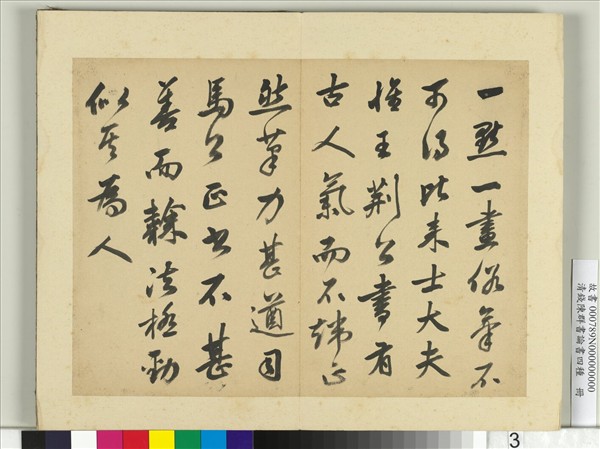 一點一畫俗氣不
可得比來士大夫
惟王荊公書有
古人氣而不端正
然筆力甚遒司
馬公正書不甚
善而隸法極勁
似其為人
故書 000789N000000000
清錢陳群書論書四種 冊
3